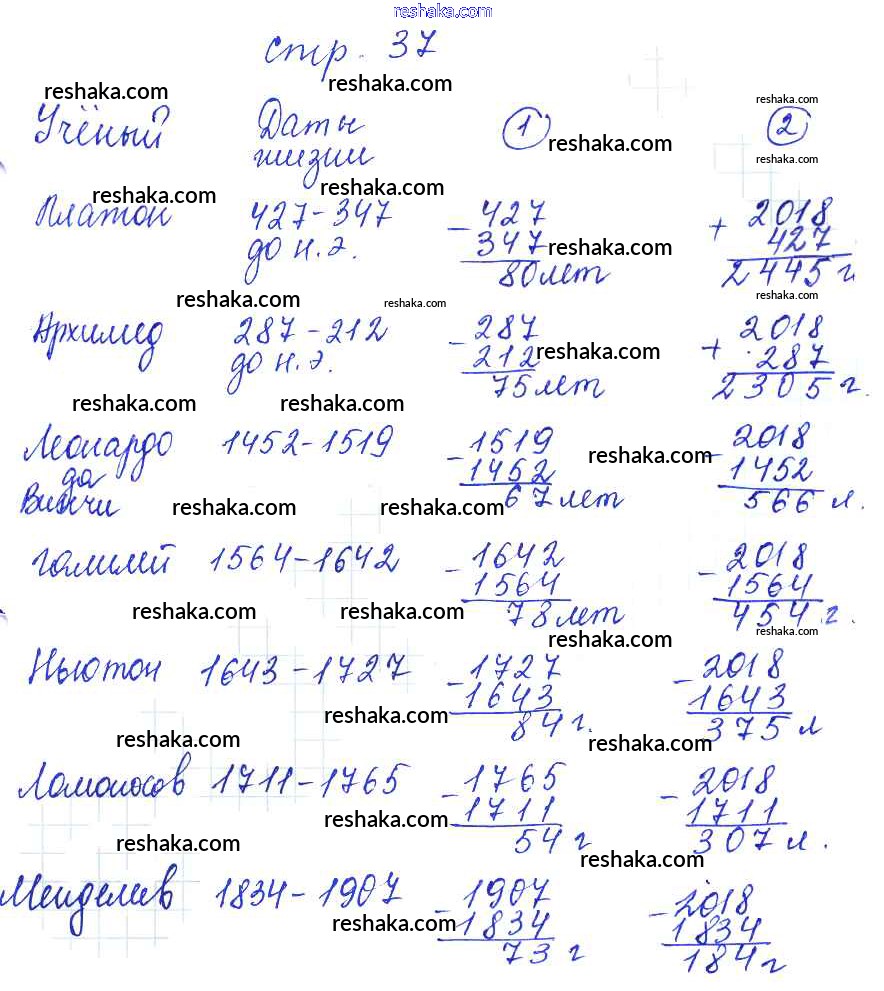 reshaka.com
стр. 37
reshaka.com reshaka.com reshaka.com
Учёный Даты 1 2
жизни reshaka.com reshaka.com
reshaka.com reshaka.com
Платон 427-347 - 427 + 2018
до н.э. 347 reshaka.com 427
80 лет 2445 г.
reshaka.com reshaka.com reshaka.com
Архимед 287-212 - 287 + 2018
до н.э. 212 reshaka.com 287
75 лет 2305 г.
reshaka.com reshaka.com
Леонардо 1452-1519 - 1519 - 2018
да 1452 reshaka.com 1452
Винчи 67 лет 566 л.
reshaka.com reshaka.com
Галилей 1564-1642 - 1642 - 2018
1564 1564
78 лет 454 г.
reshaka.com reshaka.com
reshaka.com reshaka.com
Ньютон 1643-1727 - 1727 - 2018
1643 1643
84 г. 375 л
reshaka.com
reshaka.com reshaka.com
Ломоносов 1711-1765 - 1765 - 2018
1711 1711
54 г 307 л.
reshaka.com
reshaka.com reshaka.com
Менделев 1834-1907 - 1907 - 2018
reshaka.com 1834 1834
73 г 184 г